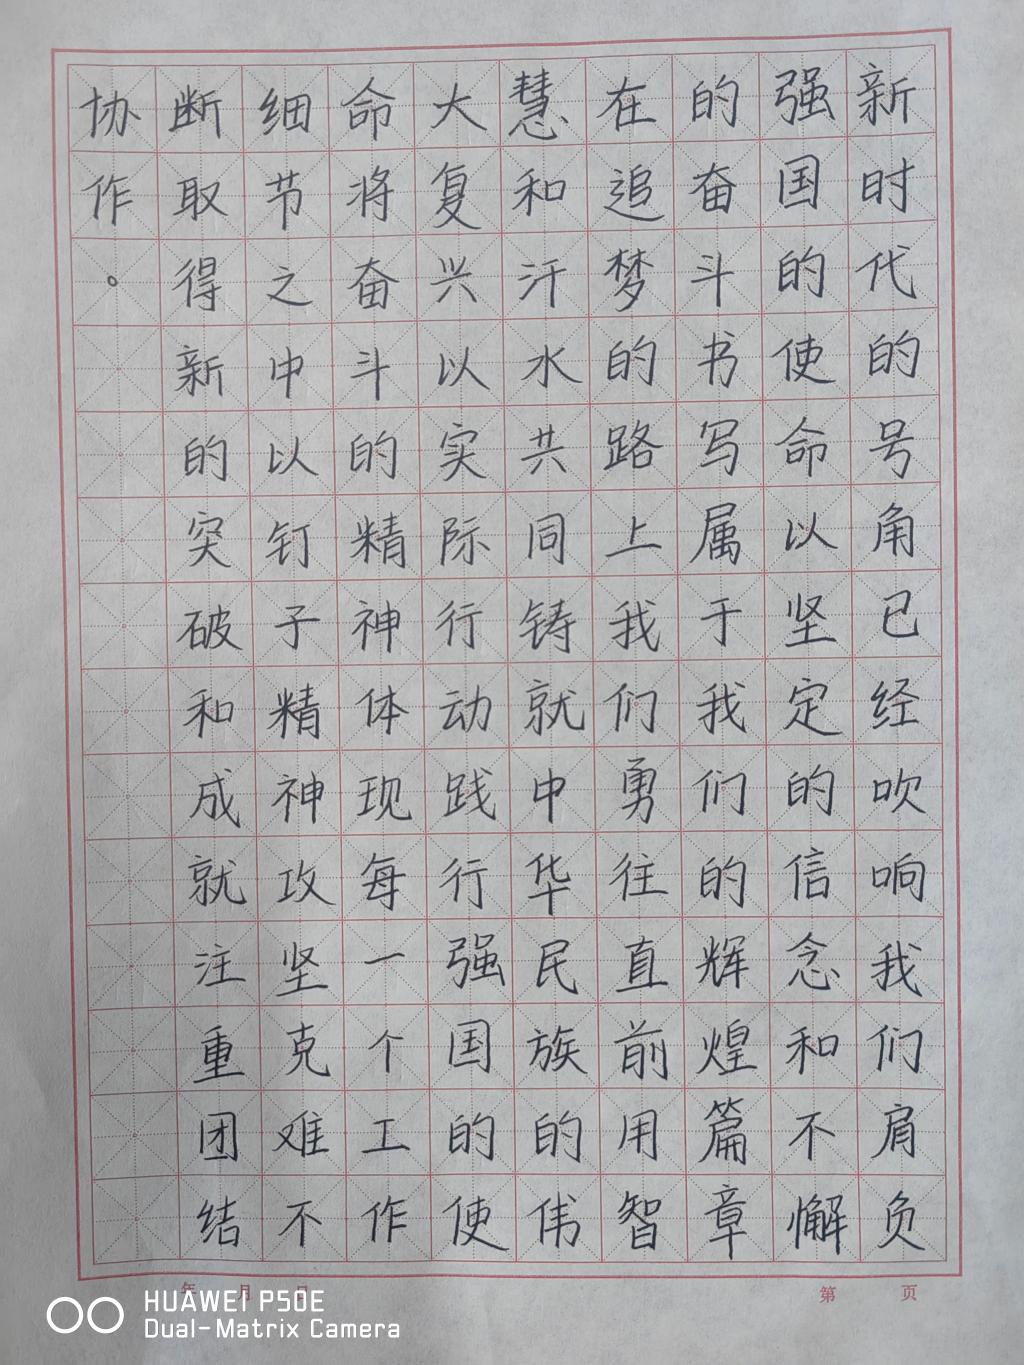 新时代的号角已经吹响我们肩负
强国的使命以坚定的信念和不懈
的奋斗书写属于我们的辉煌篇章
在追梦的路上我们勇往直前用智
慧和汗水共同铸就中华民族的伟
大复兴以实际行动践行强国的使
命将奋斗的精神体现每一个工作
细节之中以钉子精神攻坚克难不
断取得新的突破和成就注重团结
协作。
年 月 日
第 页
HUAWEI P50E
Dual-Matrix Camera